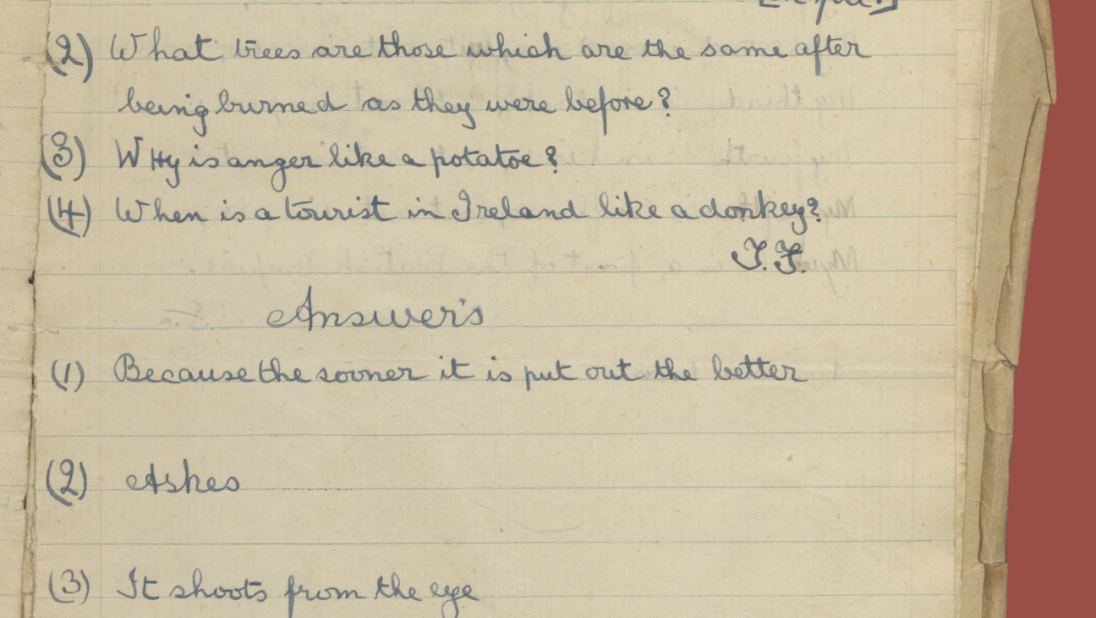 (2) What trees are those which are the same after
being burned as they were before?
(3) WHy is anger like a potatoe?
(4) When is a tourist in Ireland like a donkey?
J.F.
Answer's
(1) Because the sooner it is put out the better
(2) Ashes
(3) It shoots from the eye